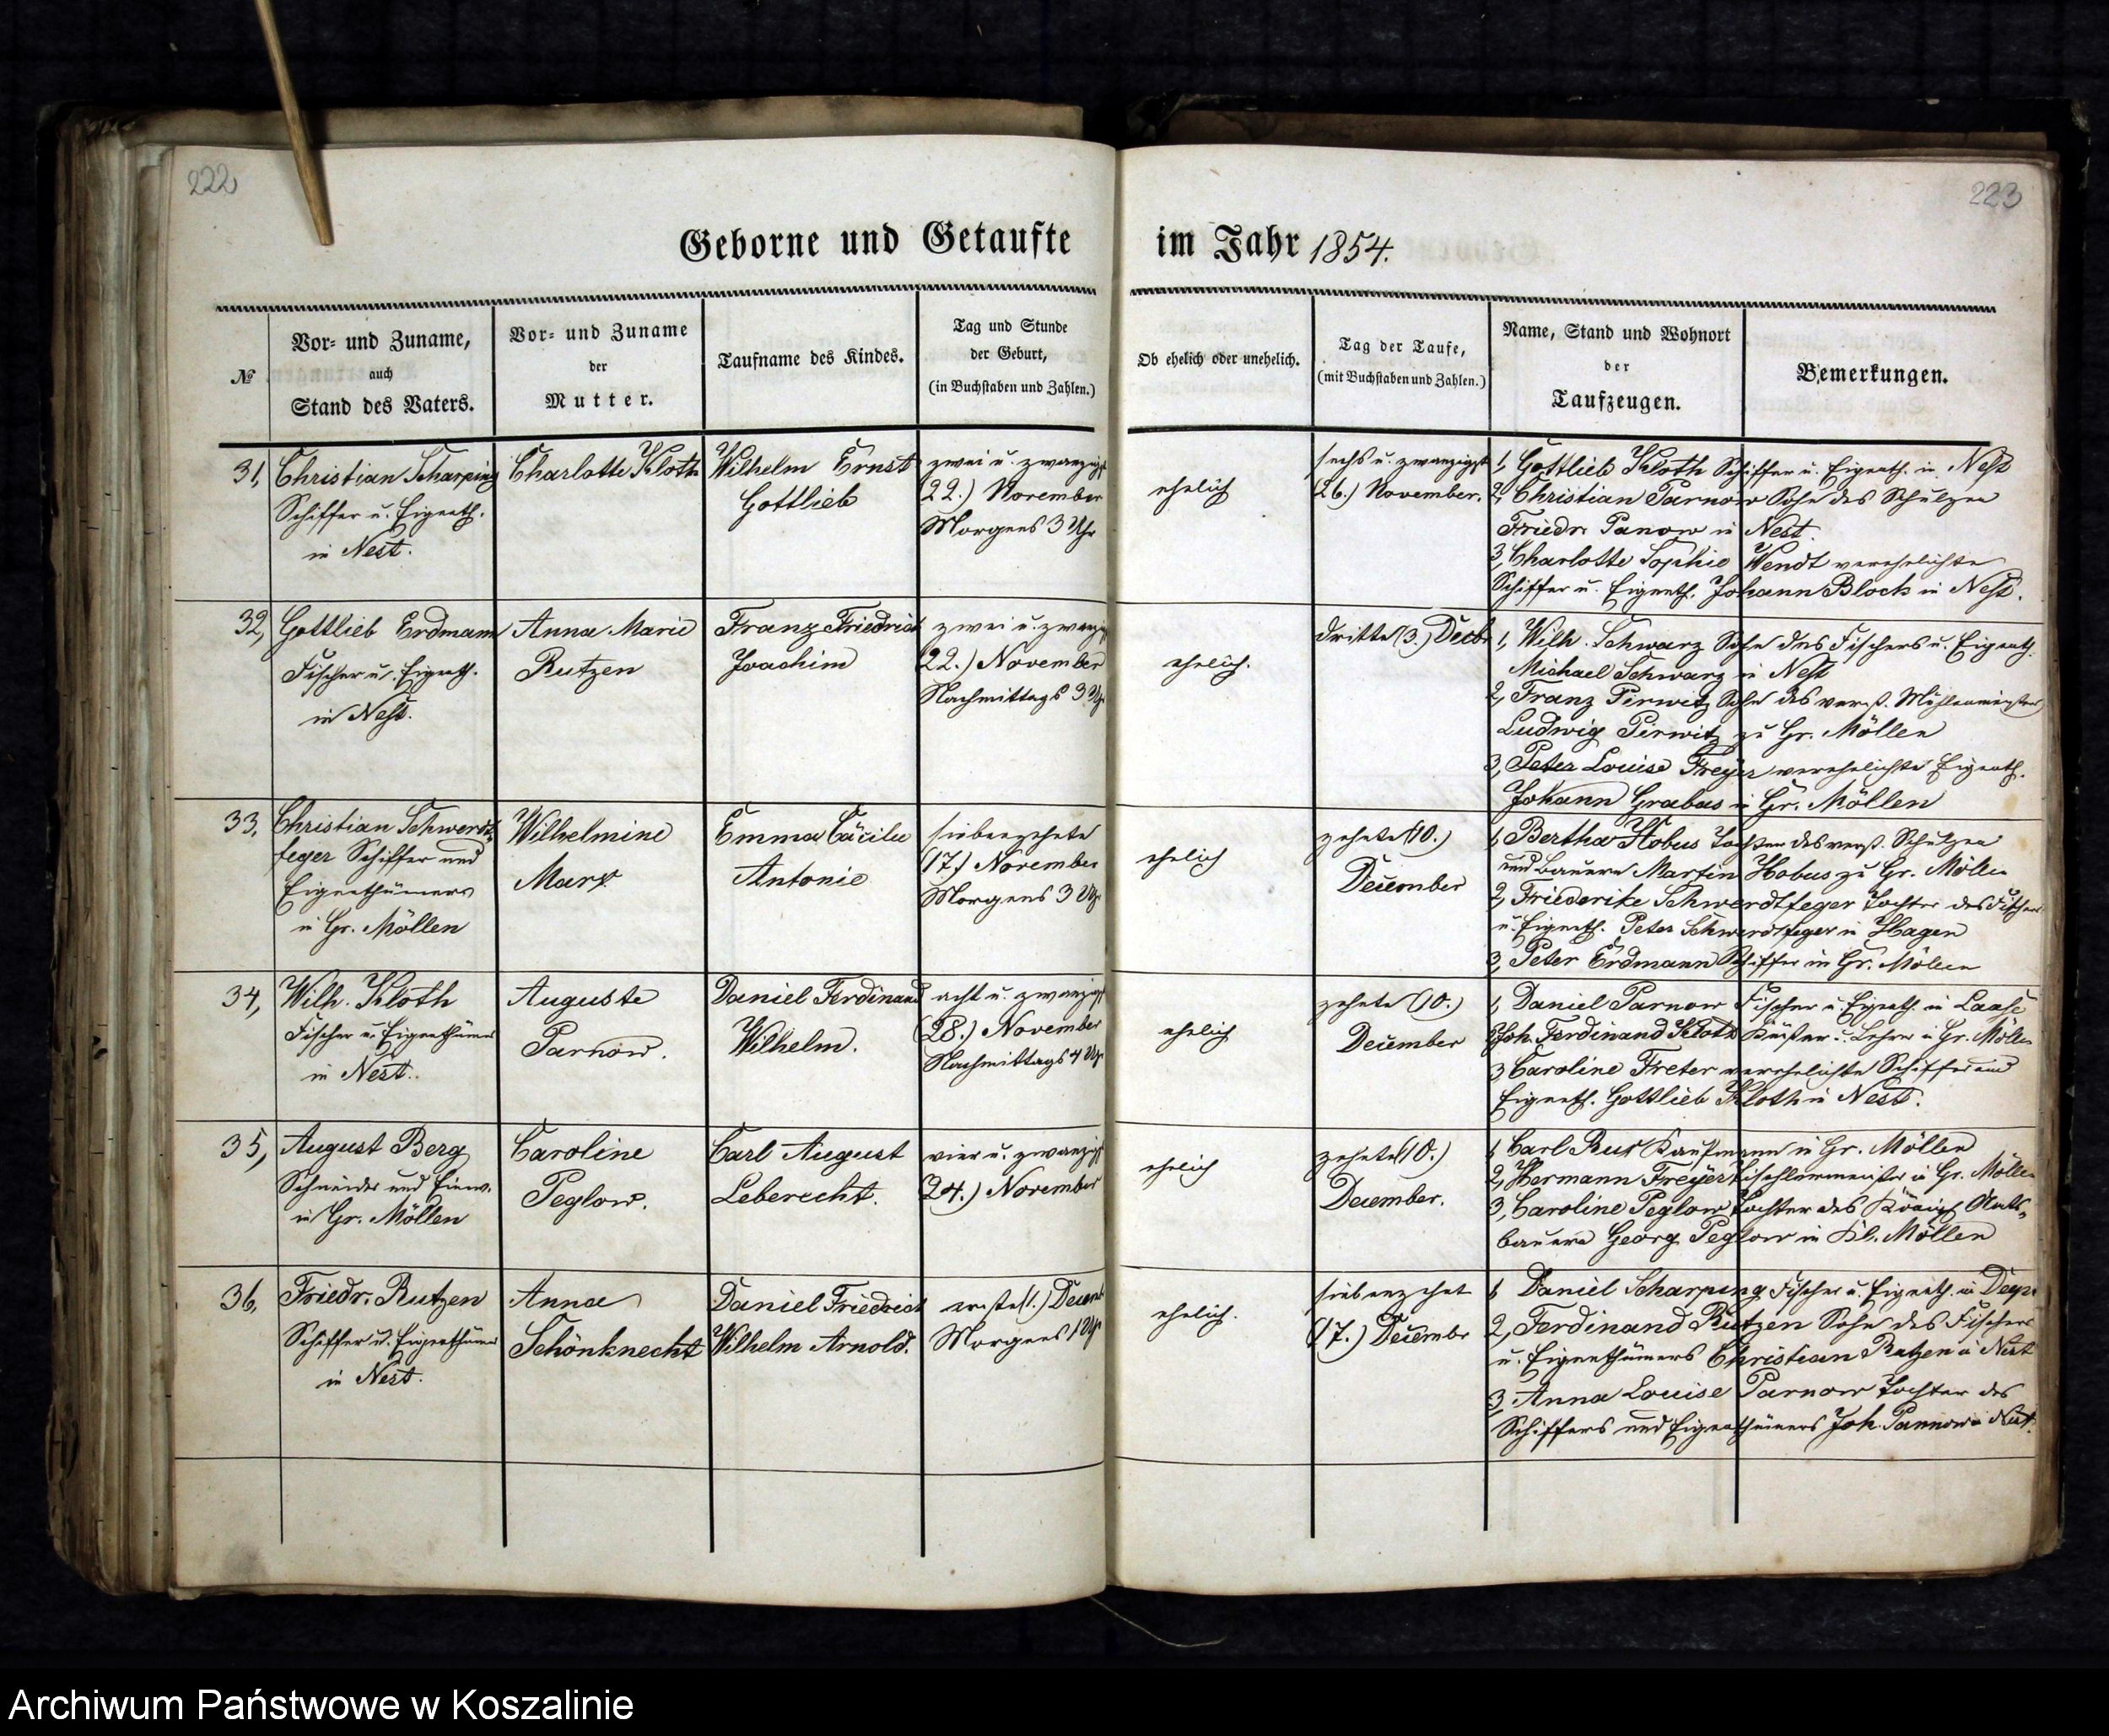 222
223
Geborne und Getaufte
im Jahr 1854.
№
Vor- und Zuname,
auch
Stand des Vaters.
Vor- und Zuname
der
Mutter.
Taufname des Kindes.
Tag und Stunde
der Geburt,
(in Buchstaben und Zahlen.)
Ob ehelich oder unehelich.
Tag der Taufe,
(mit Buchstaben und Zahlen.)
Name, Stand und Wohnort
der
Taufzeugen.
Bemerkungen.
31,
Christian Scharping
Schiffer u. Eigenth.
in Nest.
Charlotte Kloth
Wilhelm Ernst
Gottlieb
zwei u. zwanzigst
(22.) November
Morgens 3 Uhr
ehelich
sechs u. zwanzigst
(26.) November.
1, Gottlieb Kloth Schiffer u. Eigenth. in Nest
2, Christian Parnow Sohn des Schulzen
Friedr. Panow in Nest.
3, Charlotte Sophie Wendt verehelichte
Schiffer u. Eigenth. Johann Block in Nest.
32,
Gottlieb Erdmann
Fischer u. Eigenth.
in Nest.
Anna Marie
Rutzen
Franz Friedrich
Joachim
zwei u. zwanzigst
(22.) November
Nachmittags 3 Uhr
ehelich.
dritte (3.) Decbr
1, Wilh. Schwarz Sohn des Fischers u. Eigenth.
Michael Schwarz in Nest
2, Franz Pirwitz Sohn des verst. Mühlenmeisters
Ludwig Pirwitz zu Gr. Möllen
3, Peter Louise Freyer verehelichte Eigenth.
Johann Grabas in Gr. Möllen
33,
Christian Schwerdt-
feger Schiffer und
Eigenthümers
in Gr. Möllen
Wilhelmine
Marx
Emma Cäcilie
Antonie
siebenzehnte
(17.) November
Morgens 3 Uhr
ehelich
zehnte (10.)
December
1, Bertha Hobus Tochter des verst. Schulzen
und Bauern Martin Hobus zu Gr. Möllen
2, Friederike Schwerdtfeger Tochter des Fischers
u. Eigenth. Peter Schwerdtfeger in Hagen
3, Peter Erdmann Schiffer in Gr. Möllen
34,
Wilh. Kloth
Fischer u. Eigenthümer
in Nest.
Auguste
Parnow.
Daniel Ferdinand
Wilhelm.
acht u. zwanzigst
(28.) November
Nachmittags 4 Uhr
ehelich
zehnte (10.)
December
1, Daniel Parnow Fischer u. Eigenth. in Laase
2, Joh. Ferdinand Kloth Küster u. Lehrer in Gr. Möllen
3, Caroline Freter verehelichte Schiffer und
Eigenth. Gottlieb Kloth in Nest.
35,
August Berg
Schneider und Einw.
in Gr. Möllen
Caroline
Peglow.
Carl August
Leberecht.
vier u. zwanzigst
(24.) November
ehelich
zehnte (10.)
December.
1, Carl Bux Kaufmann in Gr. Möllen
2, Hermann Freyer Tischlermeister in Gr. Möllen
3, Caroline Peglow Tochter des Königl. Amts-
bauern Georg Peglow in Kl. Möllen
36,
Friedr. Rutzen
Schiffer u. Eigenthümer
in Nest.
Anna
Schönknecht
Daniel Friedrich
Wilhelm Arnold.
erste (1.) Decemb
Morgens 1 Uhr
ehelich.
siebenzehnt
(17.) Decembr
1, Daniel Scharping Fischer u. Eigenth. in Deep.
2, Ferdinand Rutzen Sohn des Fischers
u. Eigenthümers Christian Rutzen in Nest
3, Anna Louise Parnow Tochter des
Schiffers und Eigenthümers Joh. Pannow in Nest.
Archiwum Państwowe w Koszalinie